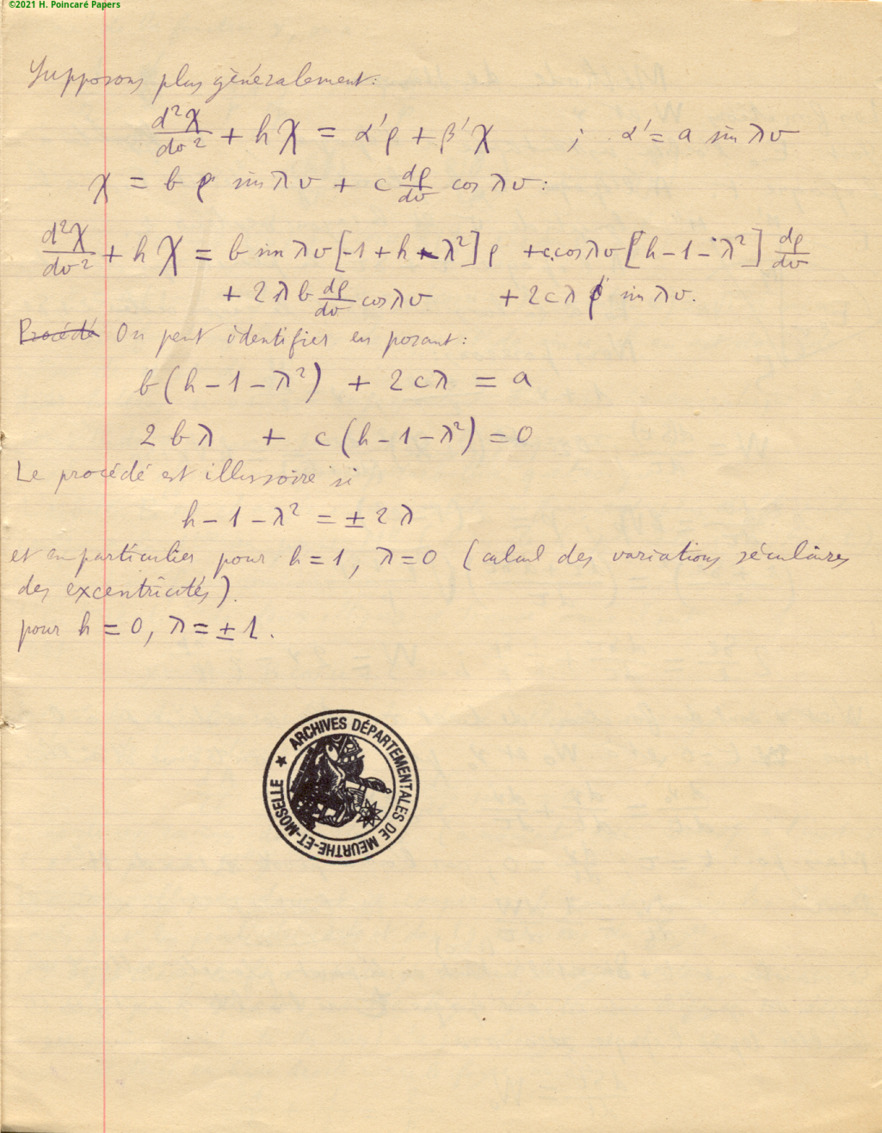 ©2021 H. Poincaré Papers
Supposons plus généralement:
d²χ/dv² + hχ = α'ρ + β'χ ; α' = a sin λv
χ = b ρ sin λv + c dρ/dv cos λv:
d²χ/dv² + hχ = b sin λv [-1 + h - λ²] ρ + c cos λv [h - 1 - λ²] dρ/dv
+ 2λb dρ/dv cos λv + 2cλ ρ sin λv.
Procédé On peut identifier en posant:
b(h - 1 - λ²) + 2cλ = a
2bλ + c(h - 1 - λ²) = 0
Le procédé est illusoire si
h - 1 - λ² = ± 2λ
et en particulier pour h = 1, λ = 0 (calcul des variations séculaires
des excentricités).
pour h = 0, λ = ± 1.
★ ARCHIVES DÉPARTEMENTALES DE MEURTHE-ET-MOSELLE